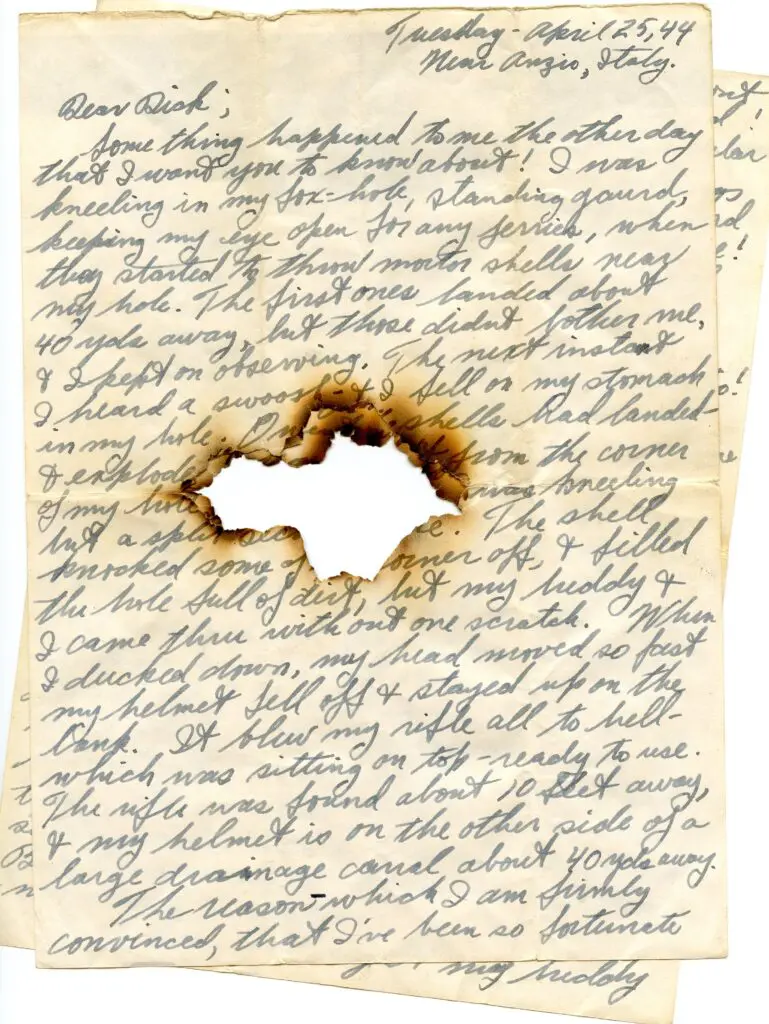 Tuesday - April 25, 44
Near Anzio, Italy.
Dear Dick;
Something happened to me the other day
that I want you to know about! I was
kneeling in my fox-hole, standing gaurd,
keeping my eye open for any jerries, when
they started to throw mortor shells near
my hole. The first ones landed about
40 yds away, but those didnt bother me,
& I kept on observing. The next instant
I heard a swoosh - & I fell on my stomach
in my hole. shells had landed-
& explode from the corner
of my hole was kneeling
but a The shell
knocked some orner off, & filled
the hole full of dirt, but my buddy &
I came thru without one scratch. When
I ducked down, my head moved so fast
my helmet fell off & stayed up on the
bank. It blew my rifle all to hell-
which was sitting on top-ready to use.
The rifle was found about 10 feet away,
& my helmet is on the other side of a
large drainage canal about 40 yds away.
The reason which I am firmly
convinced, that I've been so fortunate
my buddy